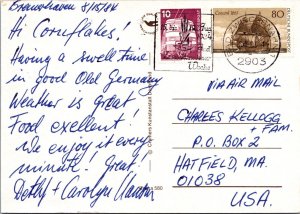 8/5/84
Hi Cornflakes!
Having a swell time
in good Old Germany
Weather is great!
Food exellent!
We enjoy it every
minute! Great!
Detlef + Carolyn
10
80
2903
VIA AIR MAIL
CHARLES KELLOGG
+ FAM.
P.O. BOX 2
HATFIELD, MA.
01038
U.S.A.